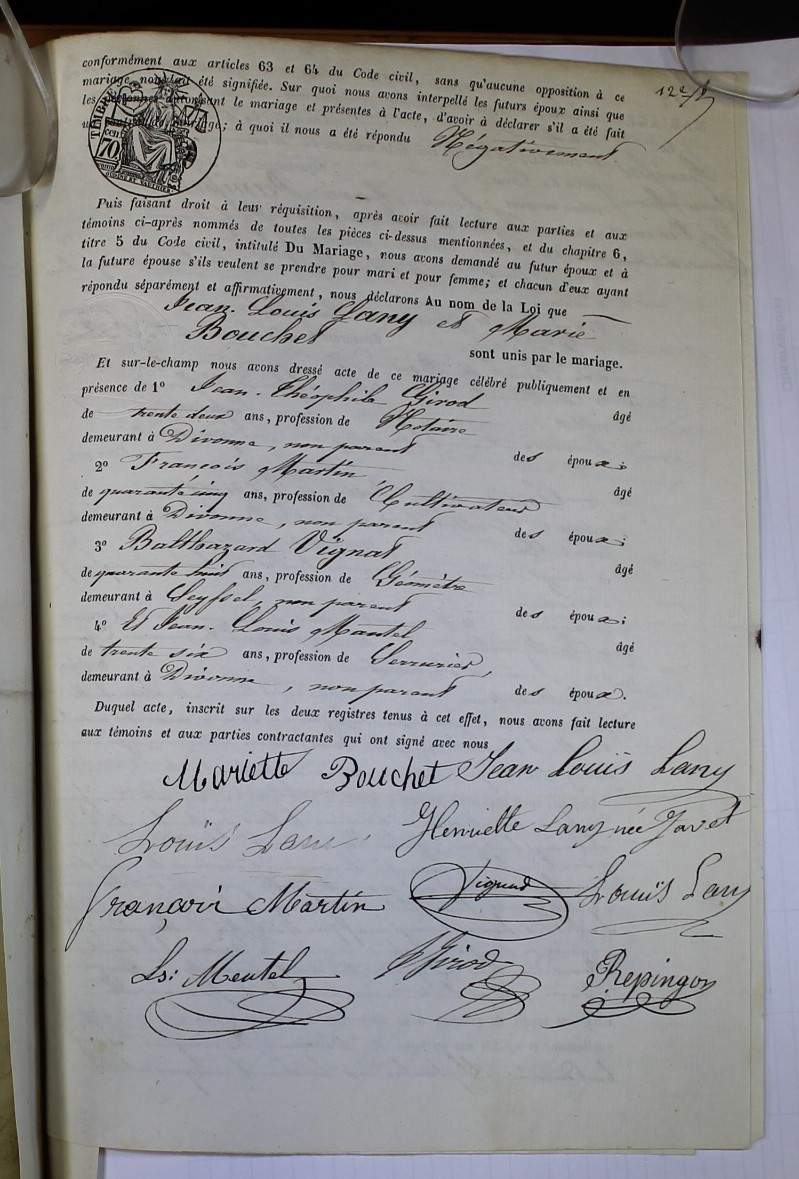 conformément aux articles 63 et 64 du Code civil, sans qu'aucune opposition à ce
mariage nous ait été signifiée. Sur quoi nous avons interpellé les futurs époux ainsi que
les personnes autorisant le mariage et présentes à l'acte, d'avoir à déclarer s'il a été fait
; à quoi il nous a été répondu Négativement
122
TIMBRE
cen
70
Puis faisant droit à leur réquisition, après avoir fait lecture aux parties et aux
témoins ci-après nommés de toutes les pièces ci-dessus mentionnées, et du chapitre 6,
titre 5 du Code civil, intitulé Du Mariage, nous avons demandé au futur époux et à
la future épouse s'ils veulent se prendre pour mari et pour femme; et chacun d'eux ayant
répondu séparément et affirmativement, nous déclarons Au nom de la Loi que
Jean-Louis Lany et Marie
Bouchet
sont unis par le mariage.
Et sur-le-champ nous avons dressé acte de ce mariage célébré publiquement et en
présence de 1º Jean-Théophile Girod âgé
de trente deux ans, profession de Notaire
demeurant à Divonne, non parent des époux;
2º François Martin âgé
de quarante cinq ans, profession de Cultivateur
demeurant à Divonne, non parent des époux;
3º Balthazard Vignat âgé
de quarante huit ans, profession de Géomètre
demeurant à Seyssel, non parent des époux;
4º Et Jean-Louis Mantel âgé
de trente six ans, profession de Serrurier,
demeurant à Divonne, non parent des époux.
Duquel acte, inscrit sur les deux registres tenus à cet effet, nous avons fait lecture
aux témoins et aux parties contractantes qui ont signé avec nous
Mariette Bouchet Jean Louis Lany
Louis Lany Henriette Lany née Javet
François Martin Louis Lany
Ls: Mentel Girod Repingon